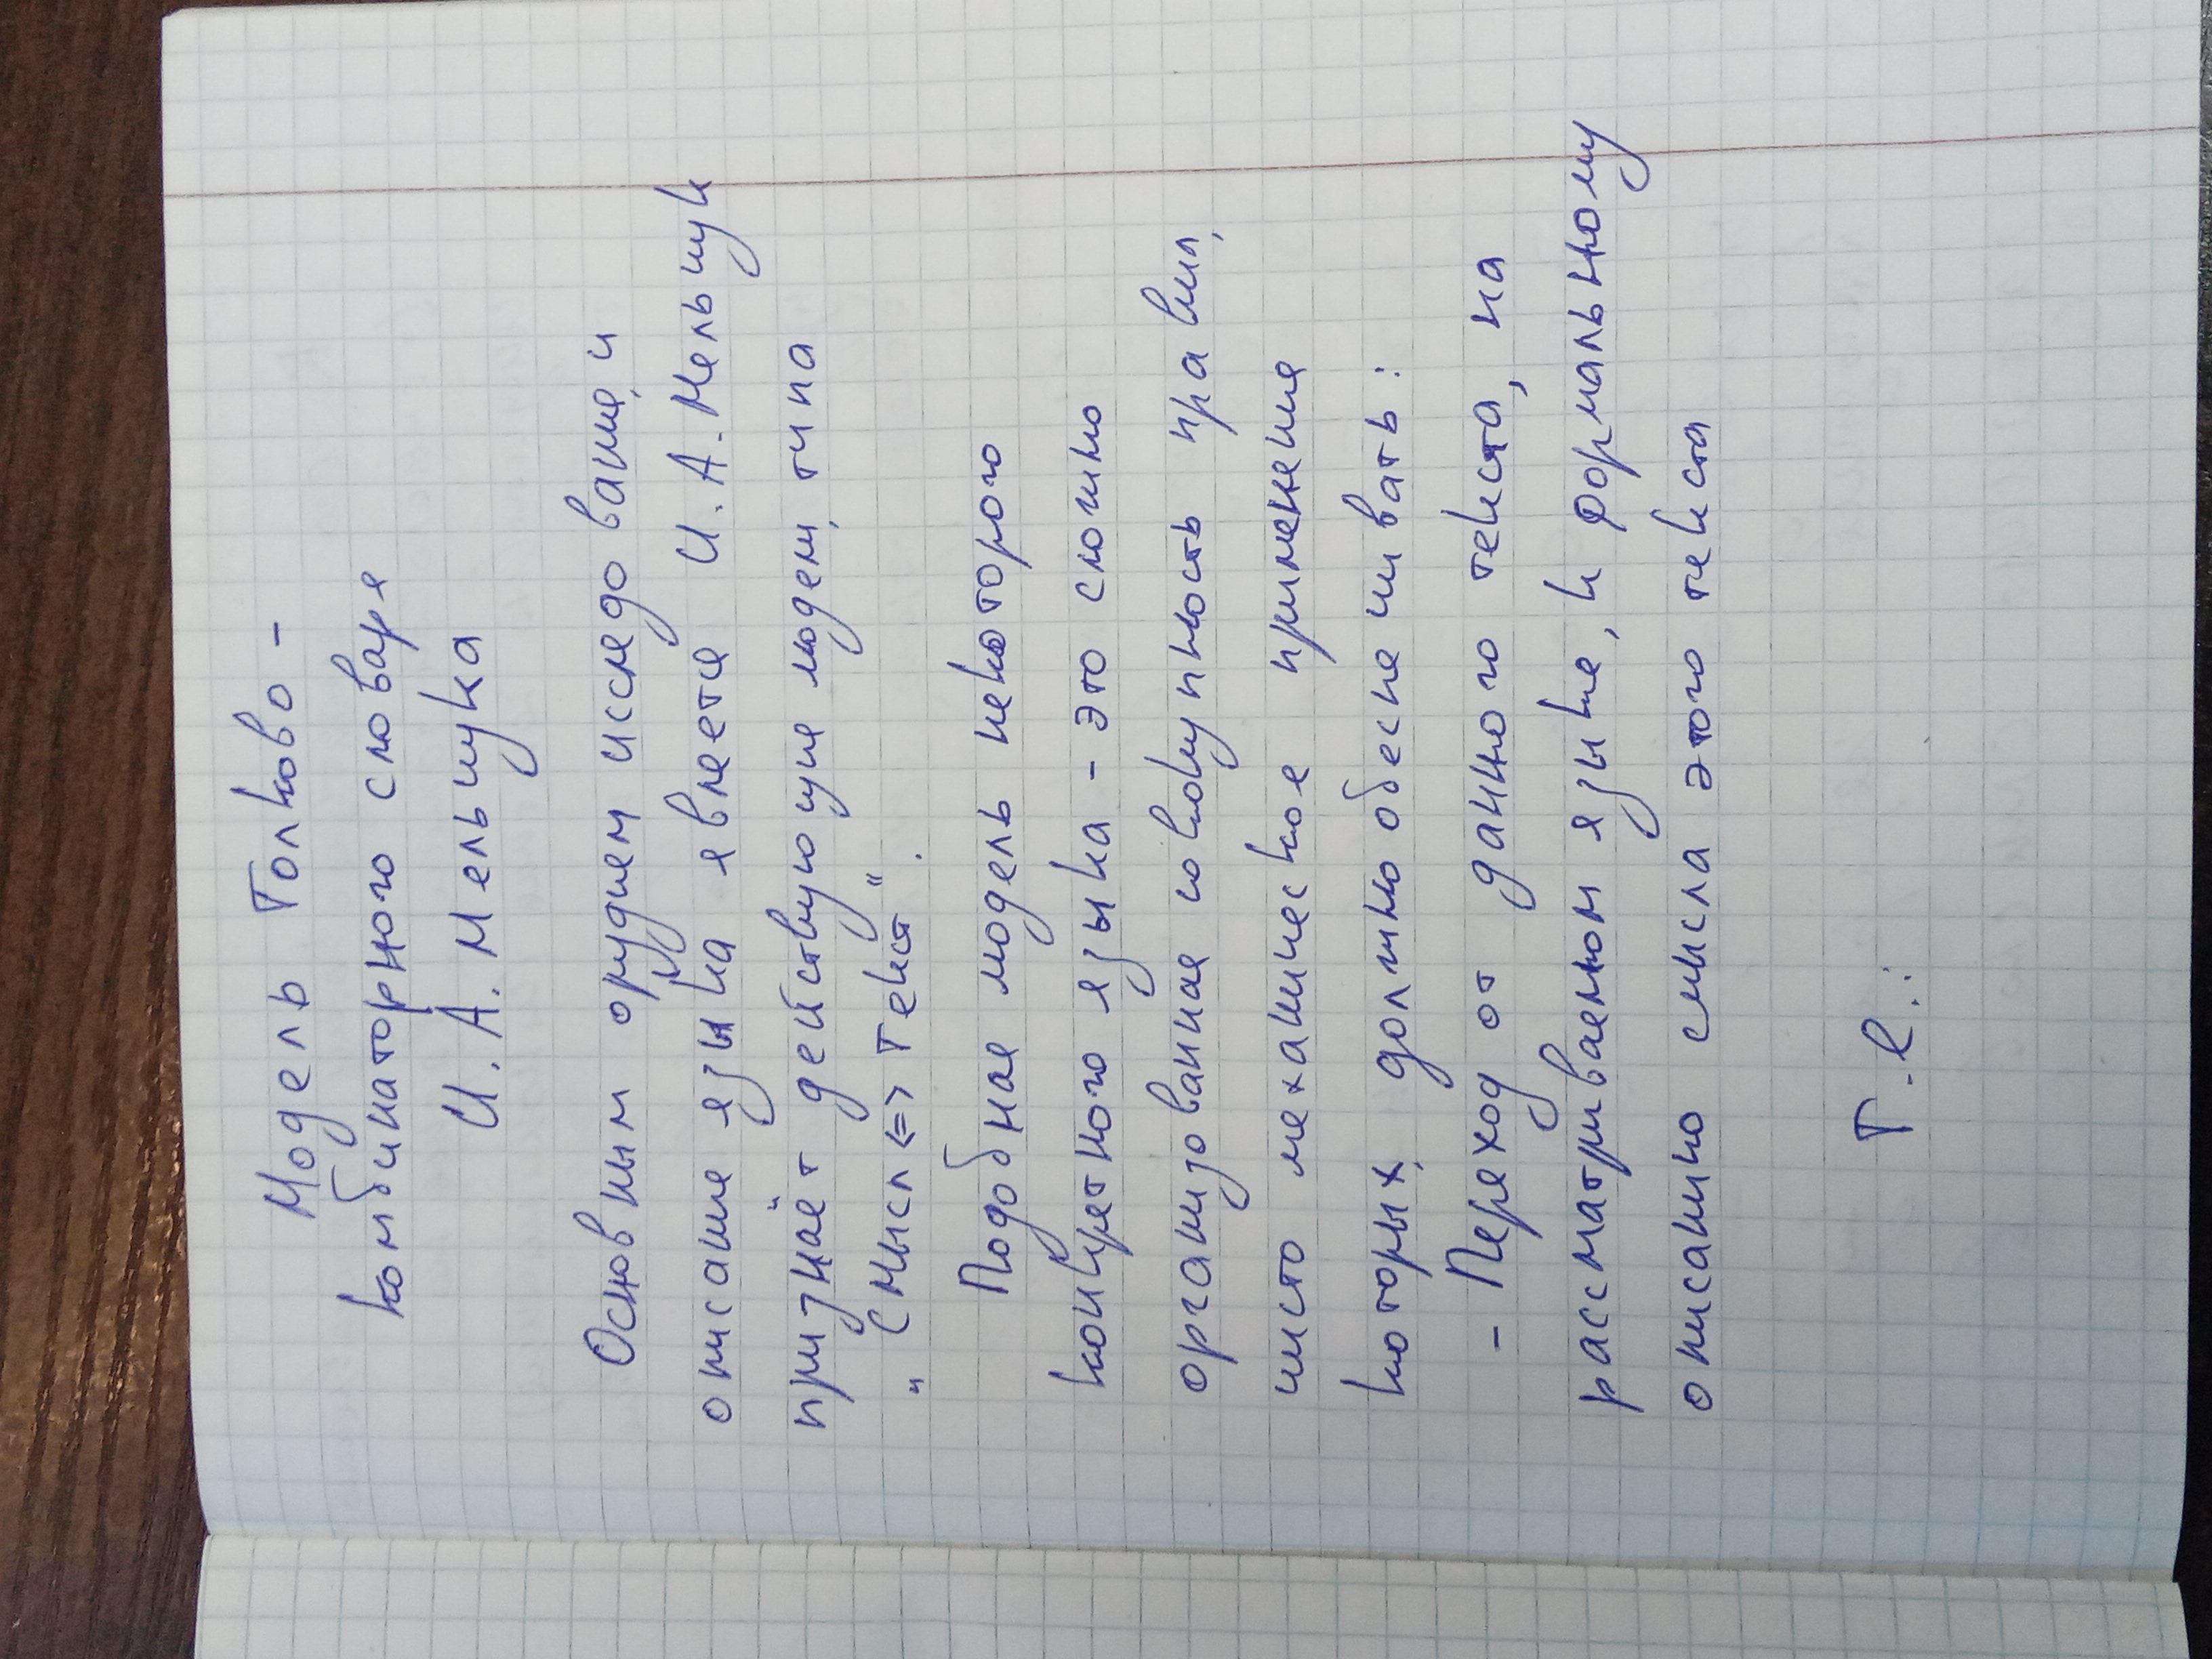 Модель Толково -
комбинаторного словаря
И. А. Мельчука
Основным орудием исследования, и
описания языка является И. А. Мельчук
признаёт действующие модели, типа
„Смысл <=> Текст".
Подобная модель некоторого
конкретного языка - это сложно
организованная совокупность правил,
чисто механическое применение
которых, должно обеспечивать:
- Переход от данного текста, на
рассматриваемом языке, к формальному
описанию смысла этого текста
Т.е.: